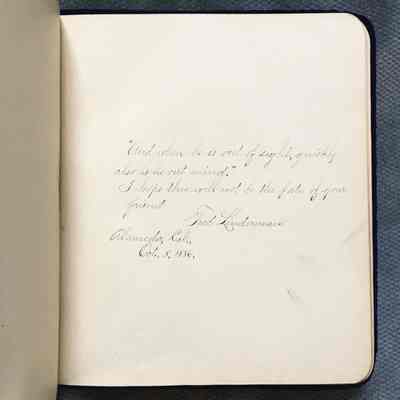 "And when he is out of sight, quickly
also is he out mind."
I hope this will not be the fate of your
friend
Fred Lindermann
Alameda, Cal.
Oct. 5, 1886.